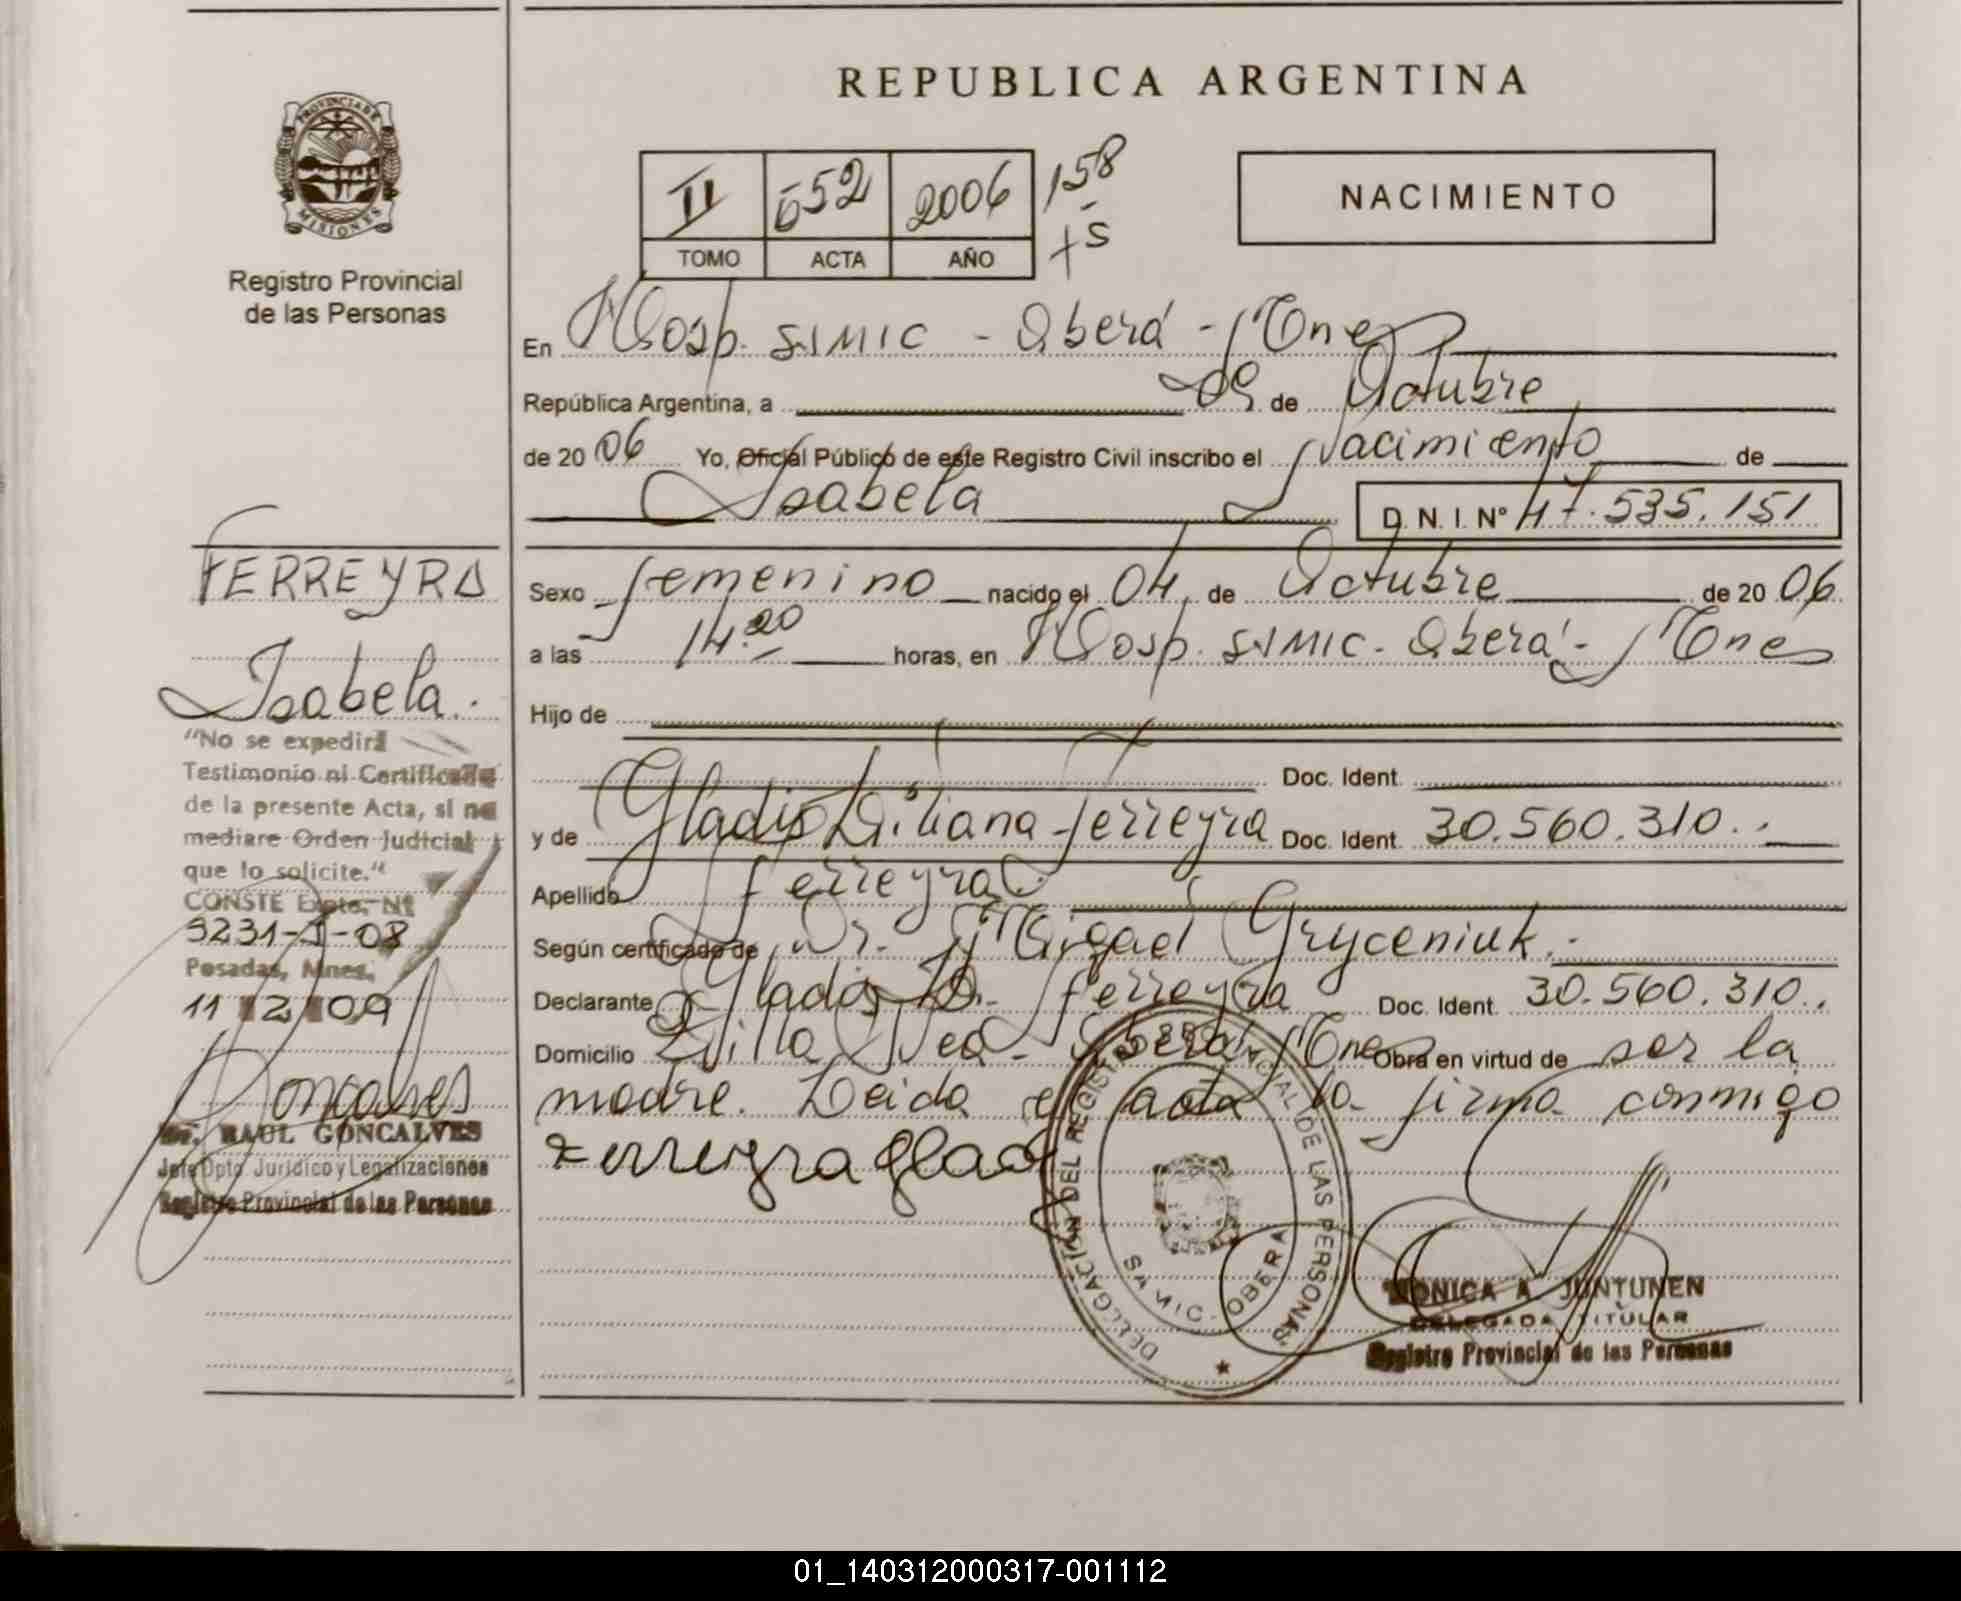 REPUBLICA ARGENTINA
PROVINCIA DE
MISIONES
Registro Provincial
de las Personas
II 552 2006 158
TOMO ACTA AÑO
NACIMIENTO
En Hosp. SAMIC - Oberá - Mnes
República Argentina, a 09 de Octubre
de 2006 Yo, Oficial Público de este Registro Civil inscribo el Nacimiento de
Isabela D.N.I. Nº 47.535.151
Sexo femenino nacido el 04 de Octubre de 2006
a las 14.20 horas, en Hosp. SAMIC - Oberá - Mnes
Hijo de
Doc. Ident.
y de Gladis Liliana Ferreyra Doc. Ident. 30.560.310.
Apellido Ferreyra.
Según certificado de Dr. Gryceniuk.
Declarante Gladis L. Ferreyra Doc. Ident. 30.560.310.
Domicilio Villa Oberá Mnes Obra en virtud de ser la
madre. Leida el acta la firma conmigo
Ferreyra Glad
FERREYRA
Isabela.
"No se expedirá
Testimonio ni Certificado
de la presente Acta, si no
mediare Orden Judicial
que lo solicite."
CONSTE Expte. Nº
3231-I-08
Posadas, Mnes.
11 12 09
Goncalves
Dr. RAUL GONCALVES
Jefe Dpto. Jurídico y Legalizaciones
Registro Provincial de las Personas
DELEGACION DEL REGISTRO PROVINCIAL DE LAS PERSONAS
SAMIC - OBERA
MONICA A. JUNTUNEN
DELEGADA TITULAR
Registro Provincial de las Personas
01_140312000317-001112